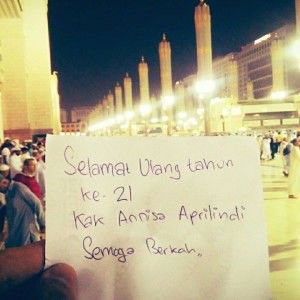 Selamat Ulang tahun
ke-21
Kak Annisa Aprilindi
Semoga Berkah,,